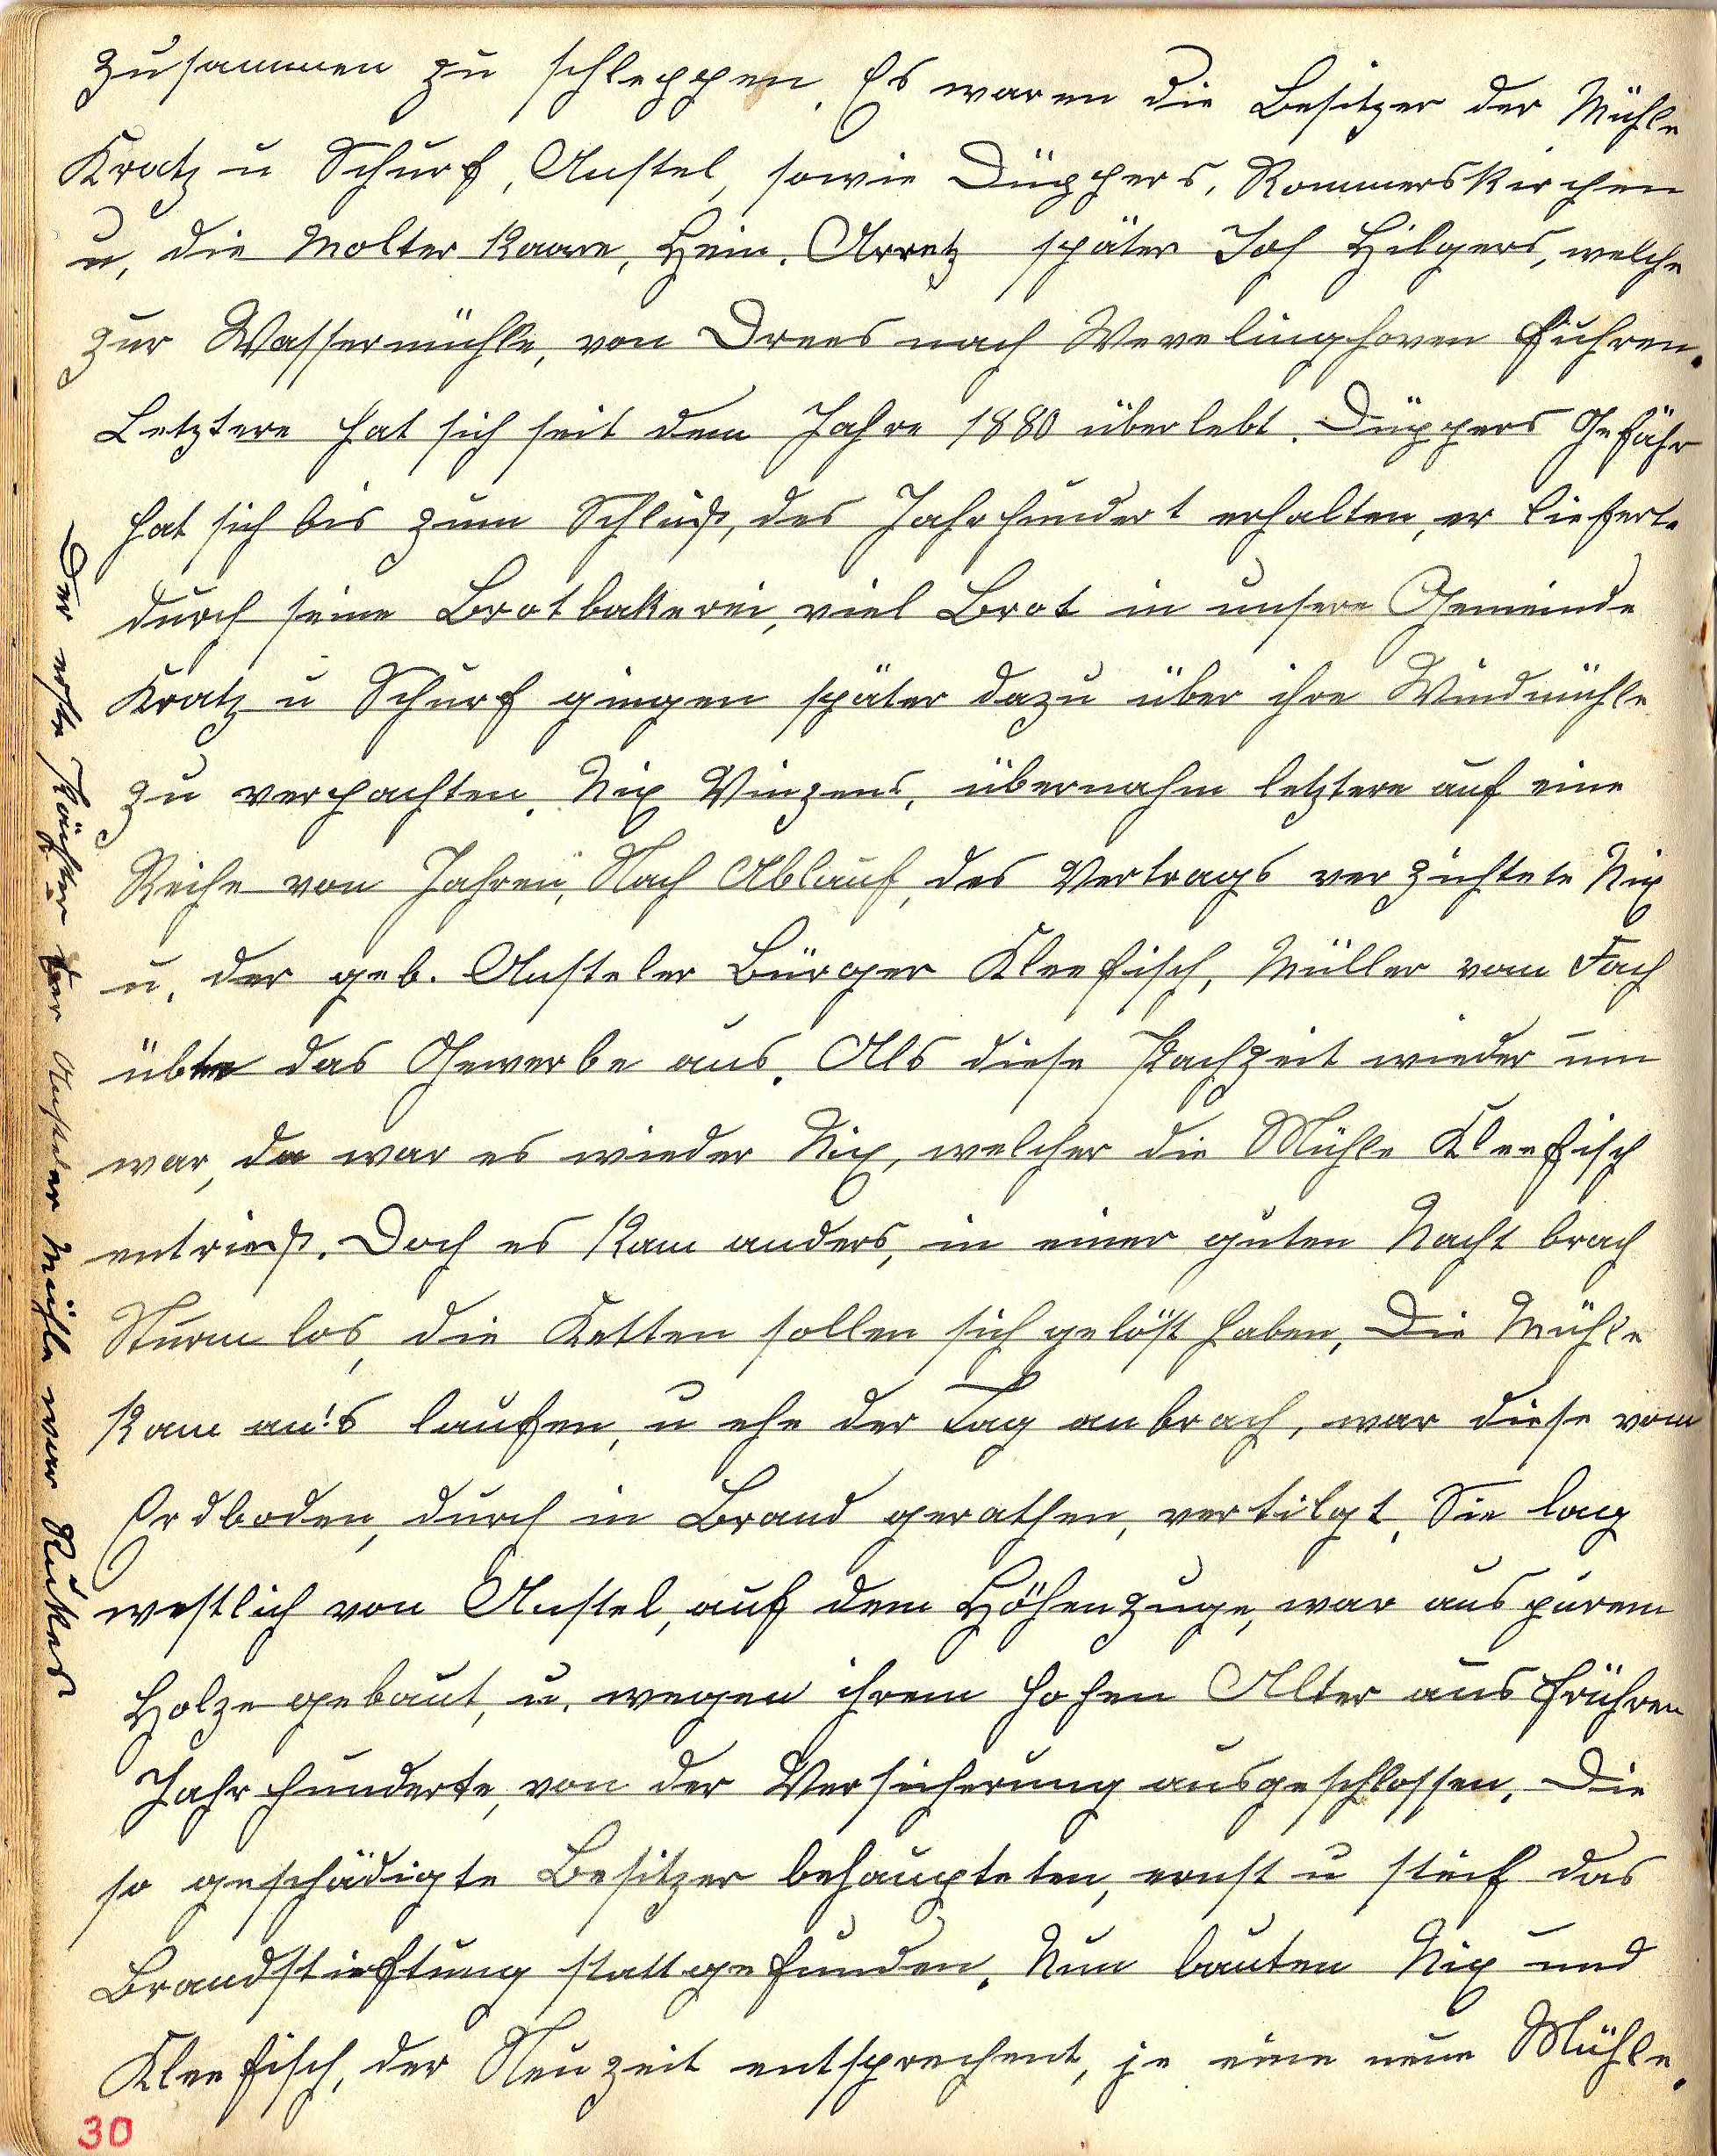 zusammen zu schleppen. Es waren die Besitzer der Mühle
Kratz u Schurf, Anstel, sowie Düppers, Rommerskirchen
u, die Molter Kaare, Hein. Arretz später Joh Hilgers, welche
zur Wassermühle, von Drees nach Wevelinghoven fuhren.
Letztere hat sich seit dem Jahre 1880 überlebt. Düppers Gefähr
hat sich bis zum Schluß, des Jahrhundert erhalten, er lieferte
durch seine Brotbakerei, viel Brot in unsere Gemeinde
Kratz u Schurf gingen später dazu über ihre Windmühle
zu verpachten. Nix Vinzens, übernahm letztere auf eine
Reihe von Jahren, Nach Ablauf, des Vertrags verzichtete Nix
u. der geb. Ansteler Bürger Kleefisch, Müller vom Fach
übte das Gewerbe aus. Als diese Pachzeit wieder um
war, da war es wieder Nix, welcher die Mühle Kleefisch
entrieß. Doch es kam anders, in einer guten Nacht brach
Sturm los, die Ketten sollen sich gelöst haben, Die Mühle
kam an's laufen, u ehe der Tag anbrach, war diese vom
Erdboden, durch in Brand gerathen, vertilgt, Sie lag
westlich von Anstel, auf dem Höhenzuge, war aus purem
Holze gebaut, u. wegen ihrem hohen Alter aus frühren
Jahrhunderte, von der Versicherung ausgeschlossen. Die
so geschädigte Besitzer behaupteten, ernst u steif das
Brandstieftung stattgefunden. Nun bauten Nix und
Kleefisch, der Neuzeit entsprechent, je eine neue Mühle.
30
Der erste Pächter der Ansteler Mühle war